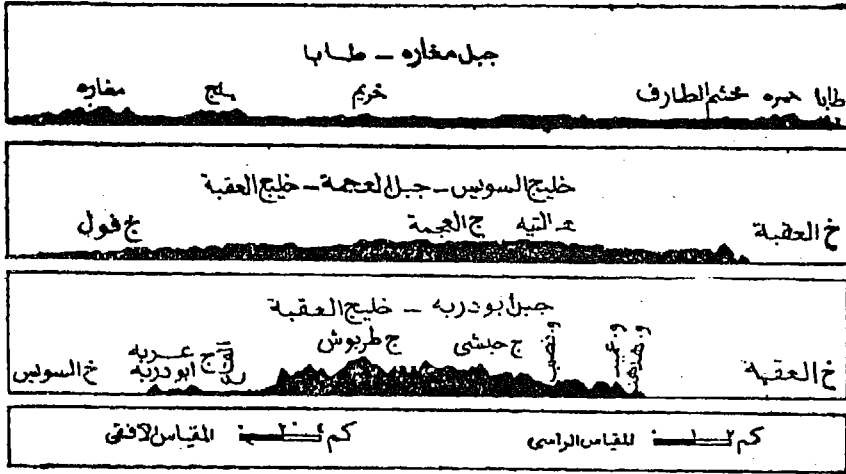 جبل مغاره - طابا
طابا حمره مخشم الطارف خريم يلج مغاره
خليج السويس - جبل العجمة - خليج العقبة
خ العقبة هـ التيه ج العجمة ج فول
جبل ابو دربه - خليج العقبة
خ العقبة و نصب ج حبشى ج طربوش القاع ج عربه خ السويس
ابو دربه
كم ٢ ١ المقياس الراسى كم ٤٠ ٢٠ المقياس الافقى